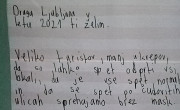 Draga Ljubljana, v
letu 2021 ti želim:
Veliko turistov, manj ukrepov,
da se lahko spet odprti vsi
lokali, da je vse spet normalno
in da se spet po čudovitih
ulicah sprehajamo brez mask.